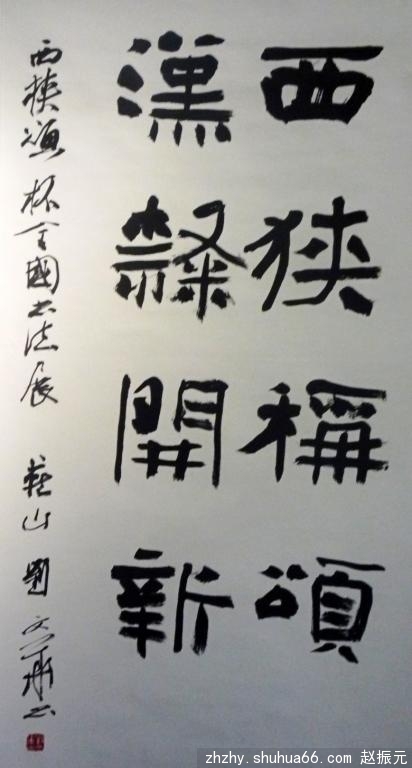 西狭稱頌
漢隸開新
西狭頌杯全國书法展 山劉文華书
zhzhy.shuhua66.com 赵振元